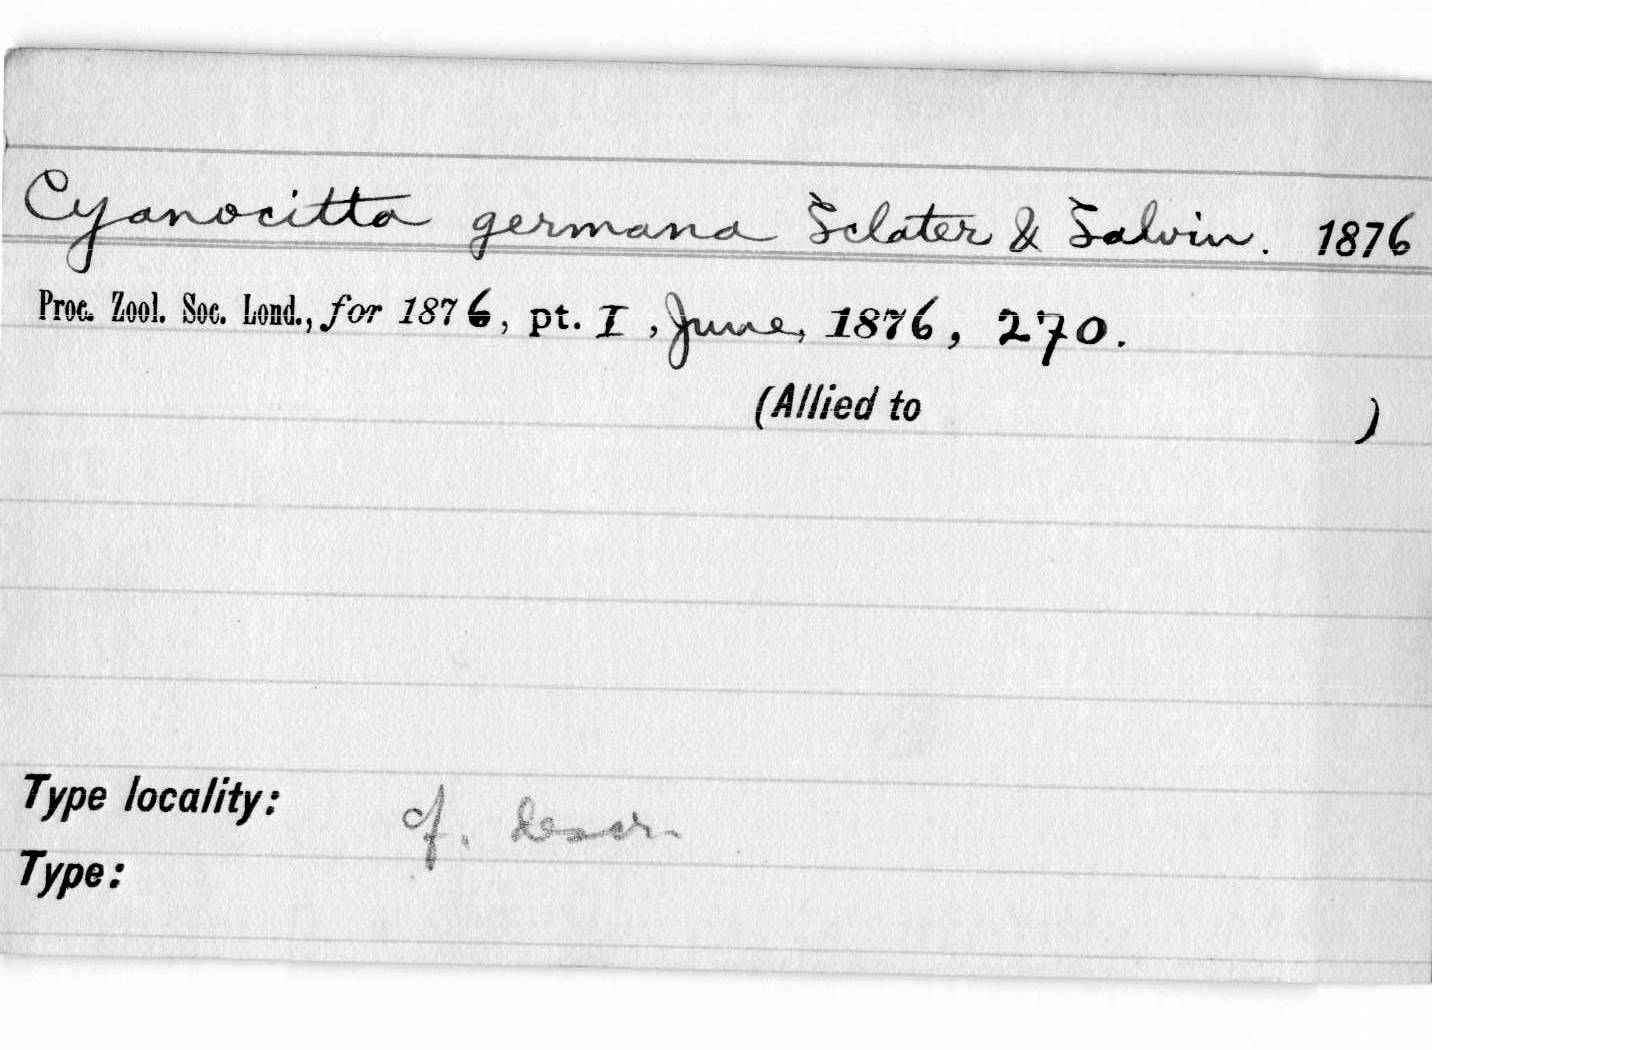 Cyanocitta germana Sclater & Salvin. 1876
Proc. Zool. Soc. Lond., for 1876, pt. I, June, 1876, 270.
(Allied to )
Type locality: cf. descr.
Type: